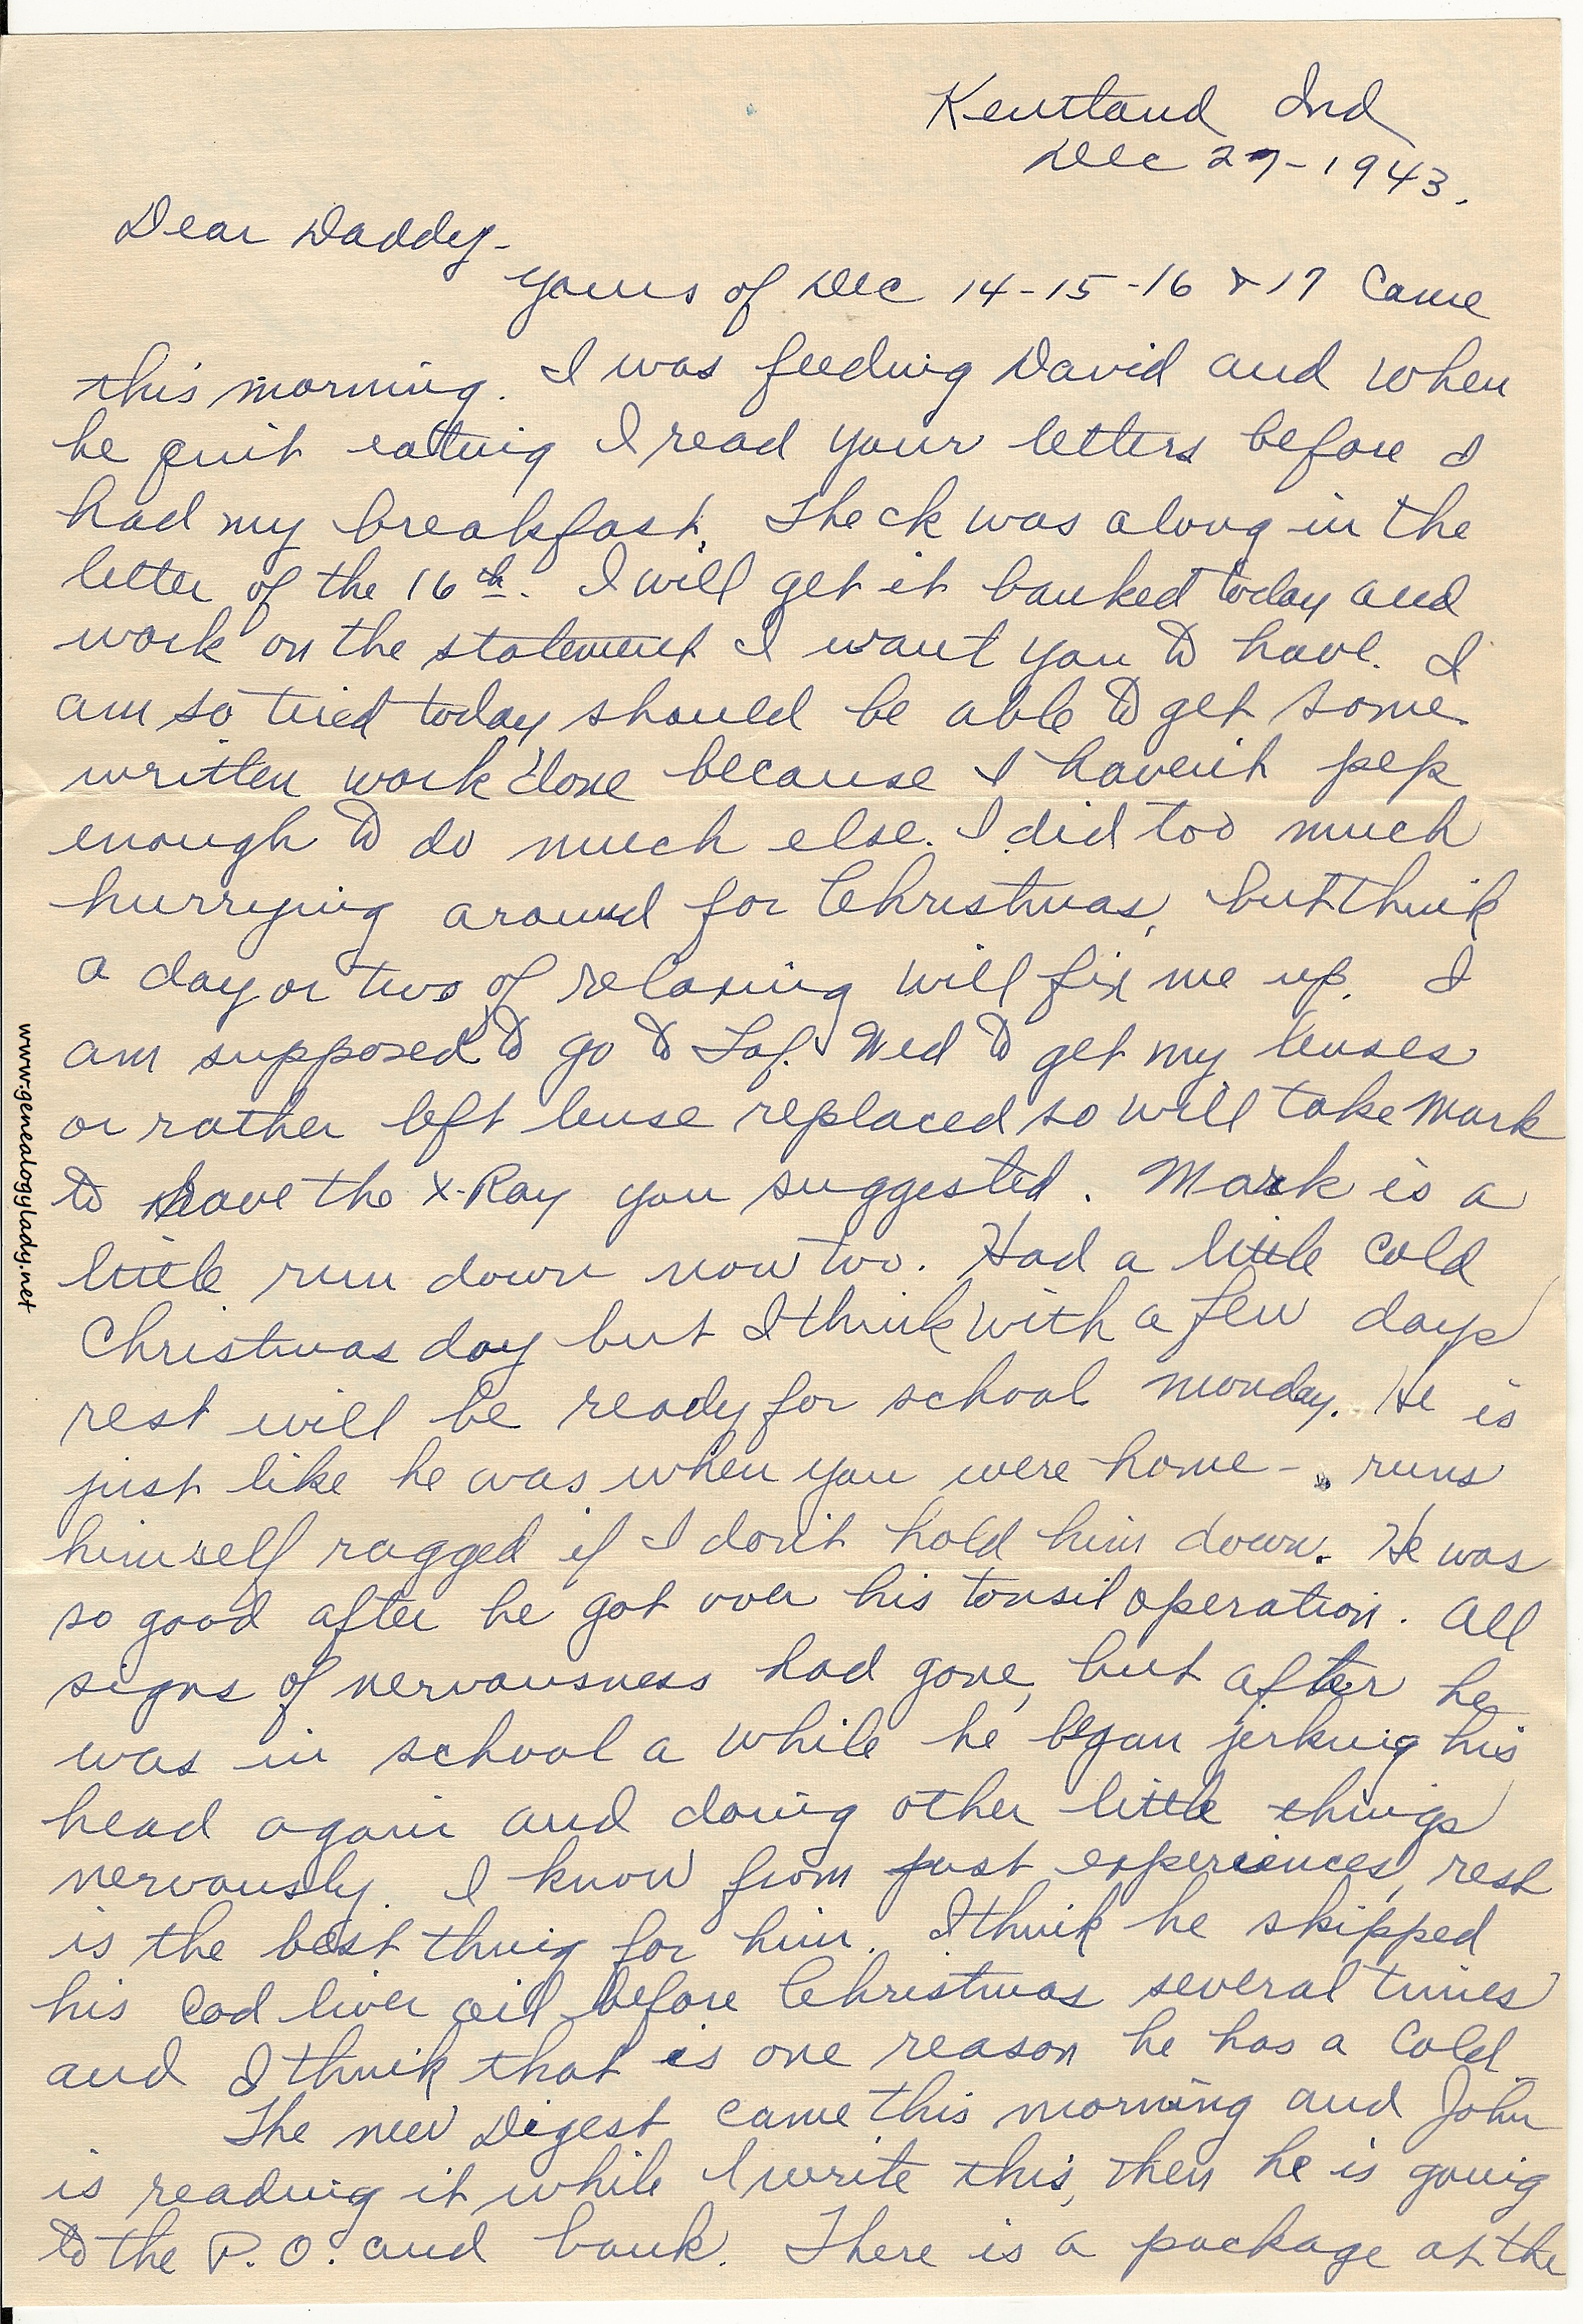 Kentland Ind
Dec 27-1943.
Dear Daddy-
Yours of Dec 14-15-16 & 17 came
this morning. I was feeding David and when
he quit eating I read your letters before I
had my breakfast. The ck was along in the
letter of the 16th. I will get it banked today and
work on the statement I want you to have. I
am so tired today should be able to get some
written work done because I haven't pep
enough to do much else. I did too much
hurrying around for Christmas, but think
a day or two of relaxing will fix me up. I
am supposed to go to Laf. Wed to get my lenses
or rather left lense replaced so will take Mark
to have the X-Ray you suggested. Mark is a
little run down now too. Had a little cold
Christmas day but I think with a few days
rest will be ready for school Monday. He is
just like he was when you were home - runs
himself ragged if I don't hold him down. He was
so good after he got over his tonsil operation. All
signs of nervousness had gone, but after he
was in school a while he began jerking his
head again and doing other little things
nervously. I know from past experiences, rest
is the best thing for him. I think he skipped
his cod liver oil before Christmas several times
and I think that is one reason he has a cold
The new Digest came this morning and John
is reading it while I write this, then he is going
to the P.O. and bank. There is a package at the
www.genealogylady.net